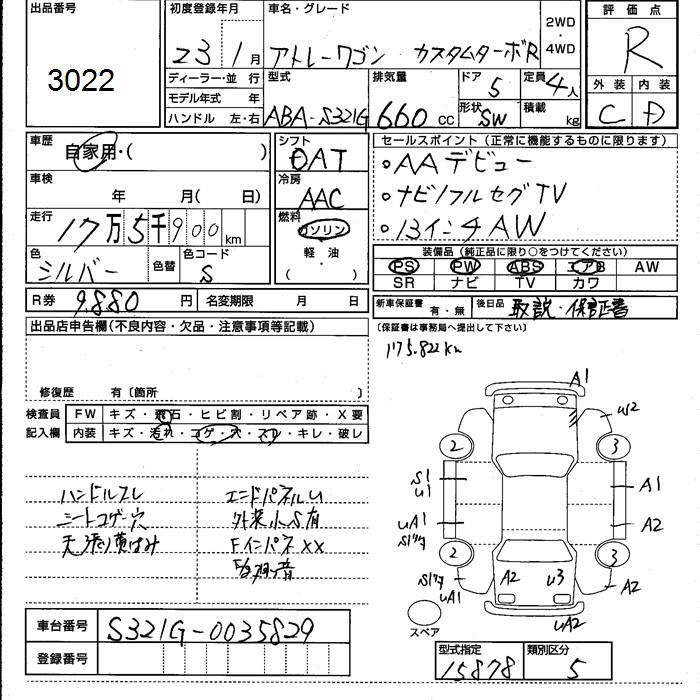 出品番号 3022
初度登録年月 23年 1月
車名・グレード アトレーワゴン カスタムターボR
2WD・4WD
評価点 R
ディーラー・並行
モデル年式 年
ハンドル 左・右
型式 ABA-S321G
排気量 660 cc
ドア 5
形状 SW
定員 4人
積載 kg
外装 C 内装 D
車歴 自家用・( )
シフト OAT
車検 年 月( 日)
冷房 AAC
走行 17万5千900km
燃料 ガソリン
軽・油
( ・ )
色 シルバー 色替
色コード S
R券 9.880 円 名変期限 月 日
セールスポイント(正常に機能するものに限ります)
○AAデビュー
○ナビ/フルセグTV
○13インチAW
装備品(純正品に限り○をつけてください)
PS PW ABS エアB AW
SR ナビ TV カワ
新車保証書 有・無 後日品 取説・保証書
(保証書は事務局へ提出して下さい)
出品店申告欄(不良内容・欠品・注意事項等記載)
175.822km
修復歴 有〔箇所 〕
検査員記入欄
FW キズ・飛石・ヒビ割・リペア跡・X要
内装 キズ・汚れ・コゲ・穴・スリ・キレ・破レ
ハンドルスレ
シートコゲ穴
エンドパネルU
外装小S有
FインパネXX
A1
U2
2 3
S1
U1
A1
UA1
A2
2 3
UA1
A2 U3
A2
UA2
スペア
車台番号 S321G-0035829
登録番号
型式指定 15878
類別区分 5